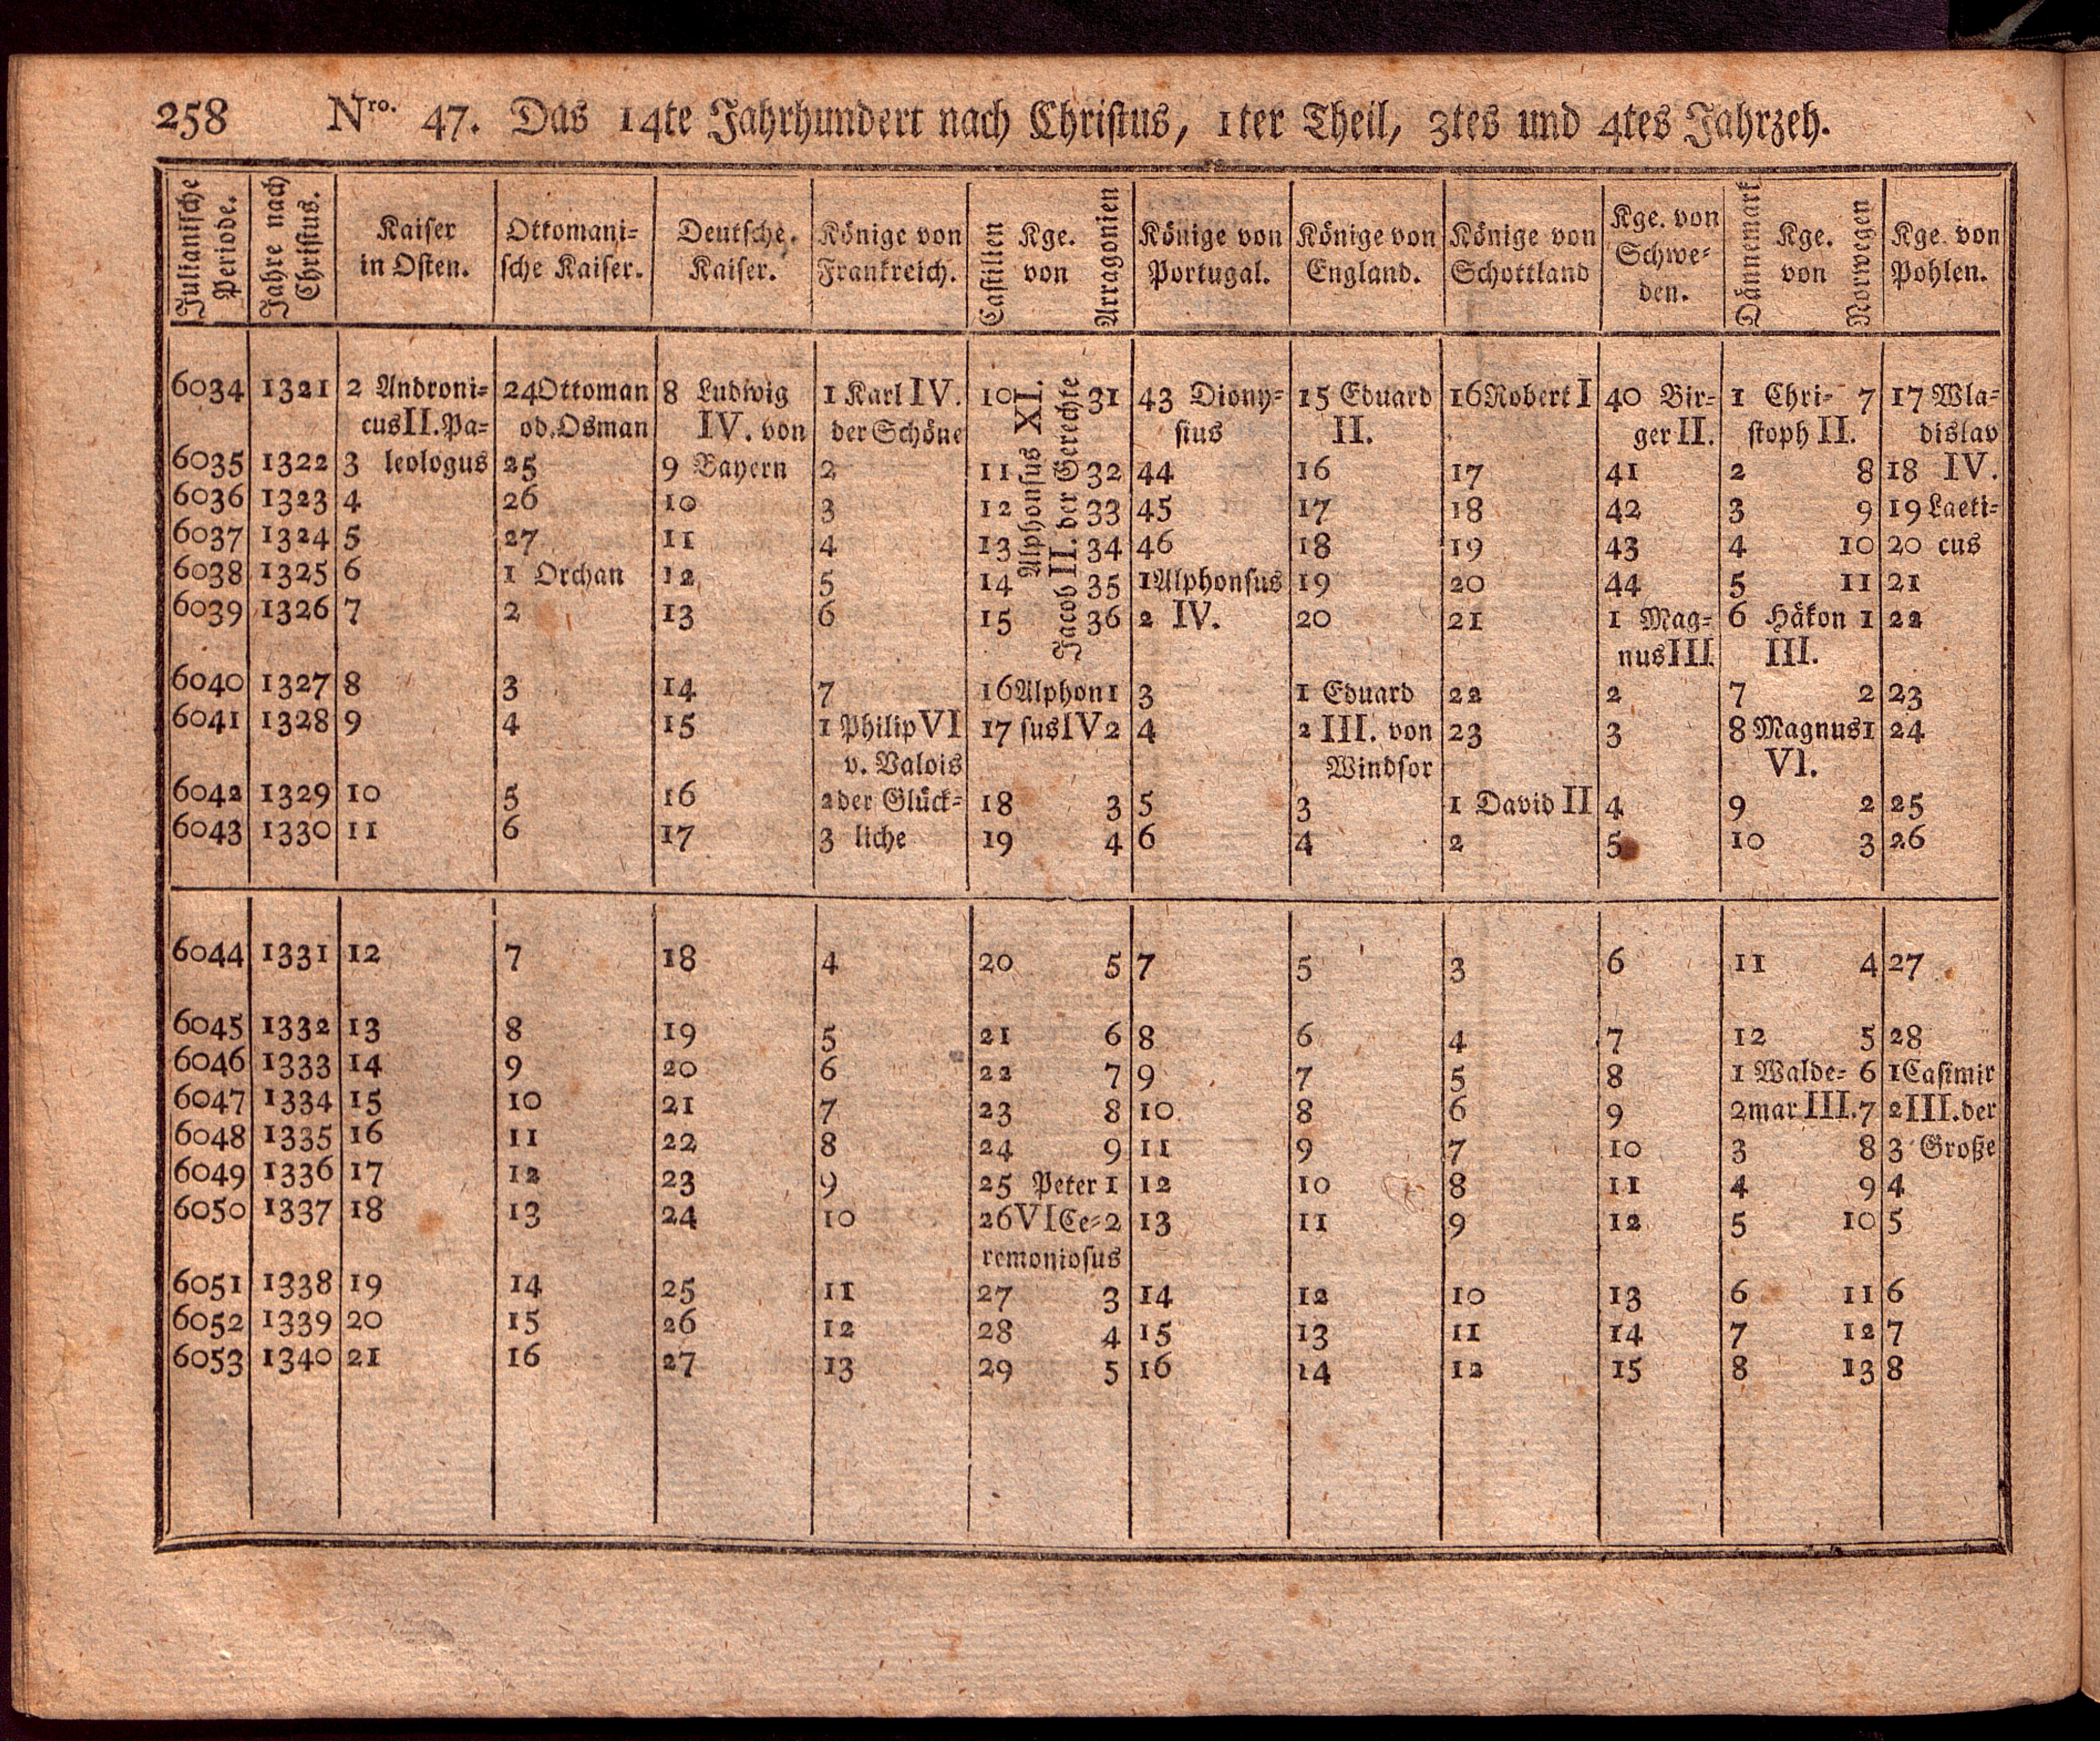 258 Nro. 47. Das 14te Jahrhundert nach Christus, 1ter Theil, 3tes und 4tes Jahrzeh.
Julianische Periode. Jahre nach Christus. Kaiser in Osten. Ottomani= sche Kaiser. Deutsche. Kaiser. Könige von Frankreich. Castilien Kge. von Arragonien Könige von Portugal. Könige von England. Könige von Schottland Kge. von Schwe= den. Dännemark Kge. von Norwegen Kge. von Pohlen.
6034 1321 2 Androni= 24 Ottoman 8 Ludwig 1 Karl IV. 10 Alphonsus XI. Jacob II. der Gerechte 31 43 Diony= 15 Eduard 16 Robert I 40 Bir= 1 Chri= 7 17 Wla=
cus II. Pa= od. Osman IV. von der Schöne sius II. ger II. stoph II. dislav
6035 1322 3 leologus 25 9 Bayern 2 11 32 44 16 17 41 2 8 18 IV.
6036 1323 4 26 10 3 12 33 45 17 18 42 3 9 19 Laeti=
6037 1324 5 27 11 4 13 34 46 18 19 43 4 10 20 cus
6038 1325 6 1 Orchan 12 5 14 35 1 Alphonsus 19 20 44 5 11 21
6039 1326 7 2 13 6 15 36 2 IV. 20 21 1 Mag= 6 Håkon 1 22
nus III III.
6040 1327 8 3 14 7 16 Alphon 1 3 1 Eduard 22 2 7 2 23
6041 1328 9 4 15 1 Philip VI 17 sus IV 2 4 2 III. von 23 3 8 Magnus 1 24
v. Valois Windsor VI.
6042 1329 10 5 16 2 der Glück= 18 3 5 3 1 David II 4 9 2 25
6043 1330 11 6 17 3 liche 19 4 6 4 2 5 10 3 26
6044 1331 12 7 18 4 20 5 7 5 3 6 11 4 27
6045 1332 13 8 19 5 21 6 8 6 4 7 12 5 28
6046 1333 14 9 20 6 22 7 9 7 5 8 1 Walde= 6 1 Casimir
6047 1334 15 10 21 7 23 8 10 8 6 9 2 mar III. 7 2 III. der
6048 1335 16 11 22 8 24 9 11 9 7 10 3 8 3 Große
6049 1336 17 12 23 9 25 Peter 1 12 10 8 11 4 9 4
6050 1337 18 13 24 10 26 VI Ce= 2 13 11 9 12 5 10 5
remoniosus
6051 1338 19 14 25 11 27 3 14 12 10 13 6 11 6
6052 1339 20 15 26 12 28 4 15 13 11 14 7 12 7
6053 1340 21 16 27 13 29 5 16 14 12 15 8 13 8